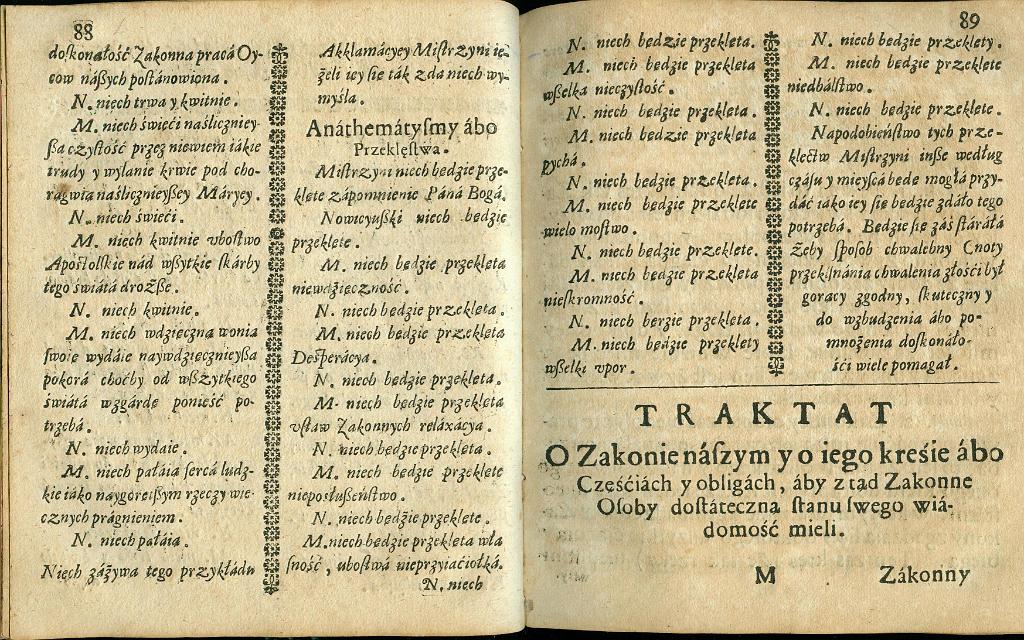 88
doſkonáłość Zakonna pracá Oy-
cow náßych poſtánowiona.
N. niech trwa y kwitnie.
M. niech święći naśliczniey-
ßa czyſtość przez niewiem iákie
trudy y wylanie krwie pod cho-
rągwią naślicznieyßey Máryey.
N. niech święći.
M. niech kwitnie vboſtwo
Apoſtolſkie nád wßytkie ſkárby
tego świátá drożße.
N. niech kwitnie.
M. niech wdzięczna wonia
ſwoię wydáie naywdzięcznieyßa
pokorá choćby od wßzytkiego
świátá wzgárdę ponieść po-
trzebá.
N. niech wydaie.
M. niech pałáia ſercá ludz-
kie iáko naygorętßym rzeczy wie-
cznych prágnieniem.
N. niech pałáia.
Niech záżywa tego przykłádu
Akklamácyey Miſtrzyni ie-
żeli iey ſie ták zda niech wy-
myśla.
Anáthemátyſmy ábo
Przeklęſtwa.
Miſtrzyni niech będzie prze-
klęte zápomnienie Páná Bogá.
Nowicyußki niech będzie
przeklęte.
M. niech będzie przeklęta
niewdzięczność.
N. niech będzie przeklęta.
M. niech będzie przeklęta
Deſperácya.
N. niech będzie przeklęta.
M. niech będzie przeklęta
vſtaw Zakonnych reláxácya.
N. niech będzie przeklęta.
M. niech będzie przeklęte
niepoſłußeńſtwo.
N. niech będzie przeklęte.
M. niech będzie przeklęta wła
ſność, uboſtwá nieprzyiaćiołká.
N. niech
89
N. niech będzie przeklęta.
M. niech będzie przeklęta
wßelka nieczyſtość.
N. niech będzie przeklęta.
M. niech będzie przeklęta
pychá.
N. niech będzie przeklęta.
M. niech będzie przeklęte
wielo moſtwo.
N. niech będzie przeklęte.
M. niech będzie przeklęta
nieſkromność.
N. niech berzie przeklęta.
M. niech będzie przeklęty
wßelki vpor.
N. niech będzie przeklęty.
M. niech będzie przeklęte
niedbálſtwo.
N. niech będzie przeklęte.
Napodobieńſtwo tych prze-
klęctw Miſtrzyni inße według
czáſu y mieyſcá będę mogłá przy-
dáć iáko iey ſie będzie zdáło tego
potrzebá. Będzie ſie záś ſtáráłá
żeby ſpoſob chwalebny Cnoty
przeklinánia chwalenia złośći był
goracy zgodny, ſkuteczny y
do wzbudzenia ábo po-
mnożenia doſkonáło-
śći wiele pomagał.
TRAKTAT
O Zakonie náſzym y o iego kreśie ábo
Cześćiách y obligách, áby z tąd Zakonne
Oſoby doſtáteczna ſtanu ſwego wiá-
domość mieli.
M Zákonny